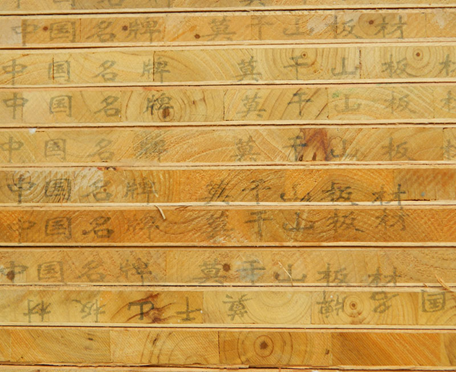 中国名牌 莫干山板材
中国名牌 莫干山板材
中国名牌 莫干山板材
中国名牌 莫干山板材
中国名牌 莫干山板材
中国名牌 莫干山板材
中国名牌 莫干山板材
国名牌 莫干山板材